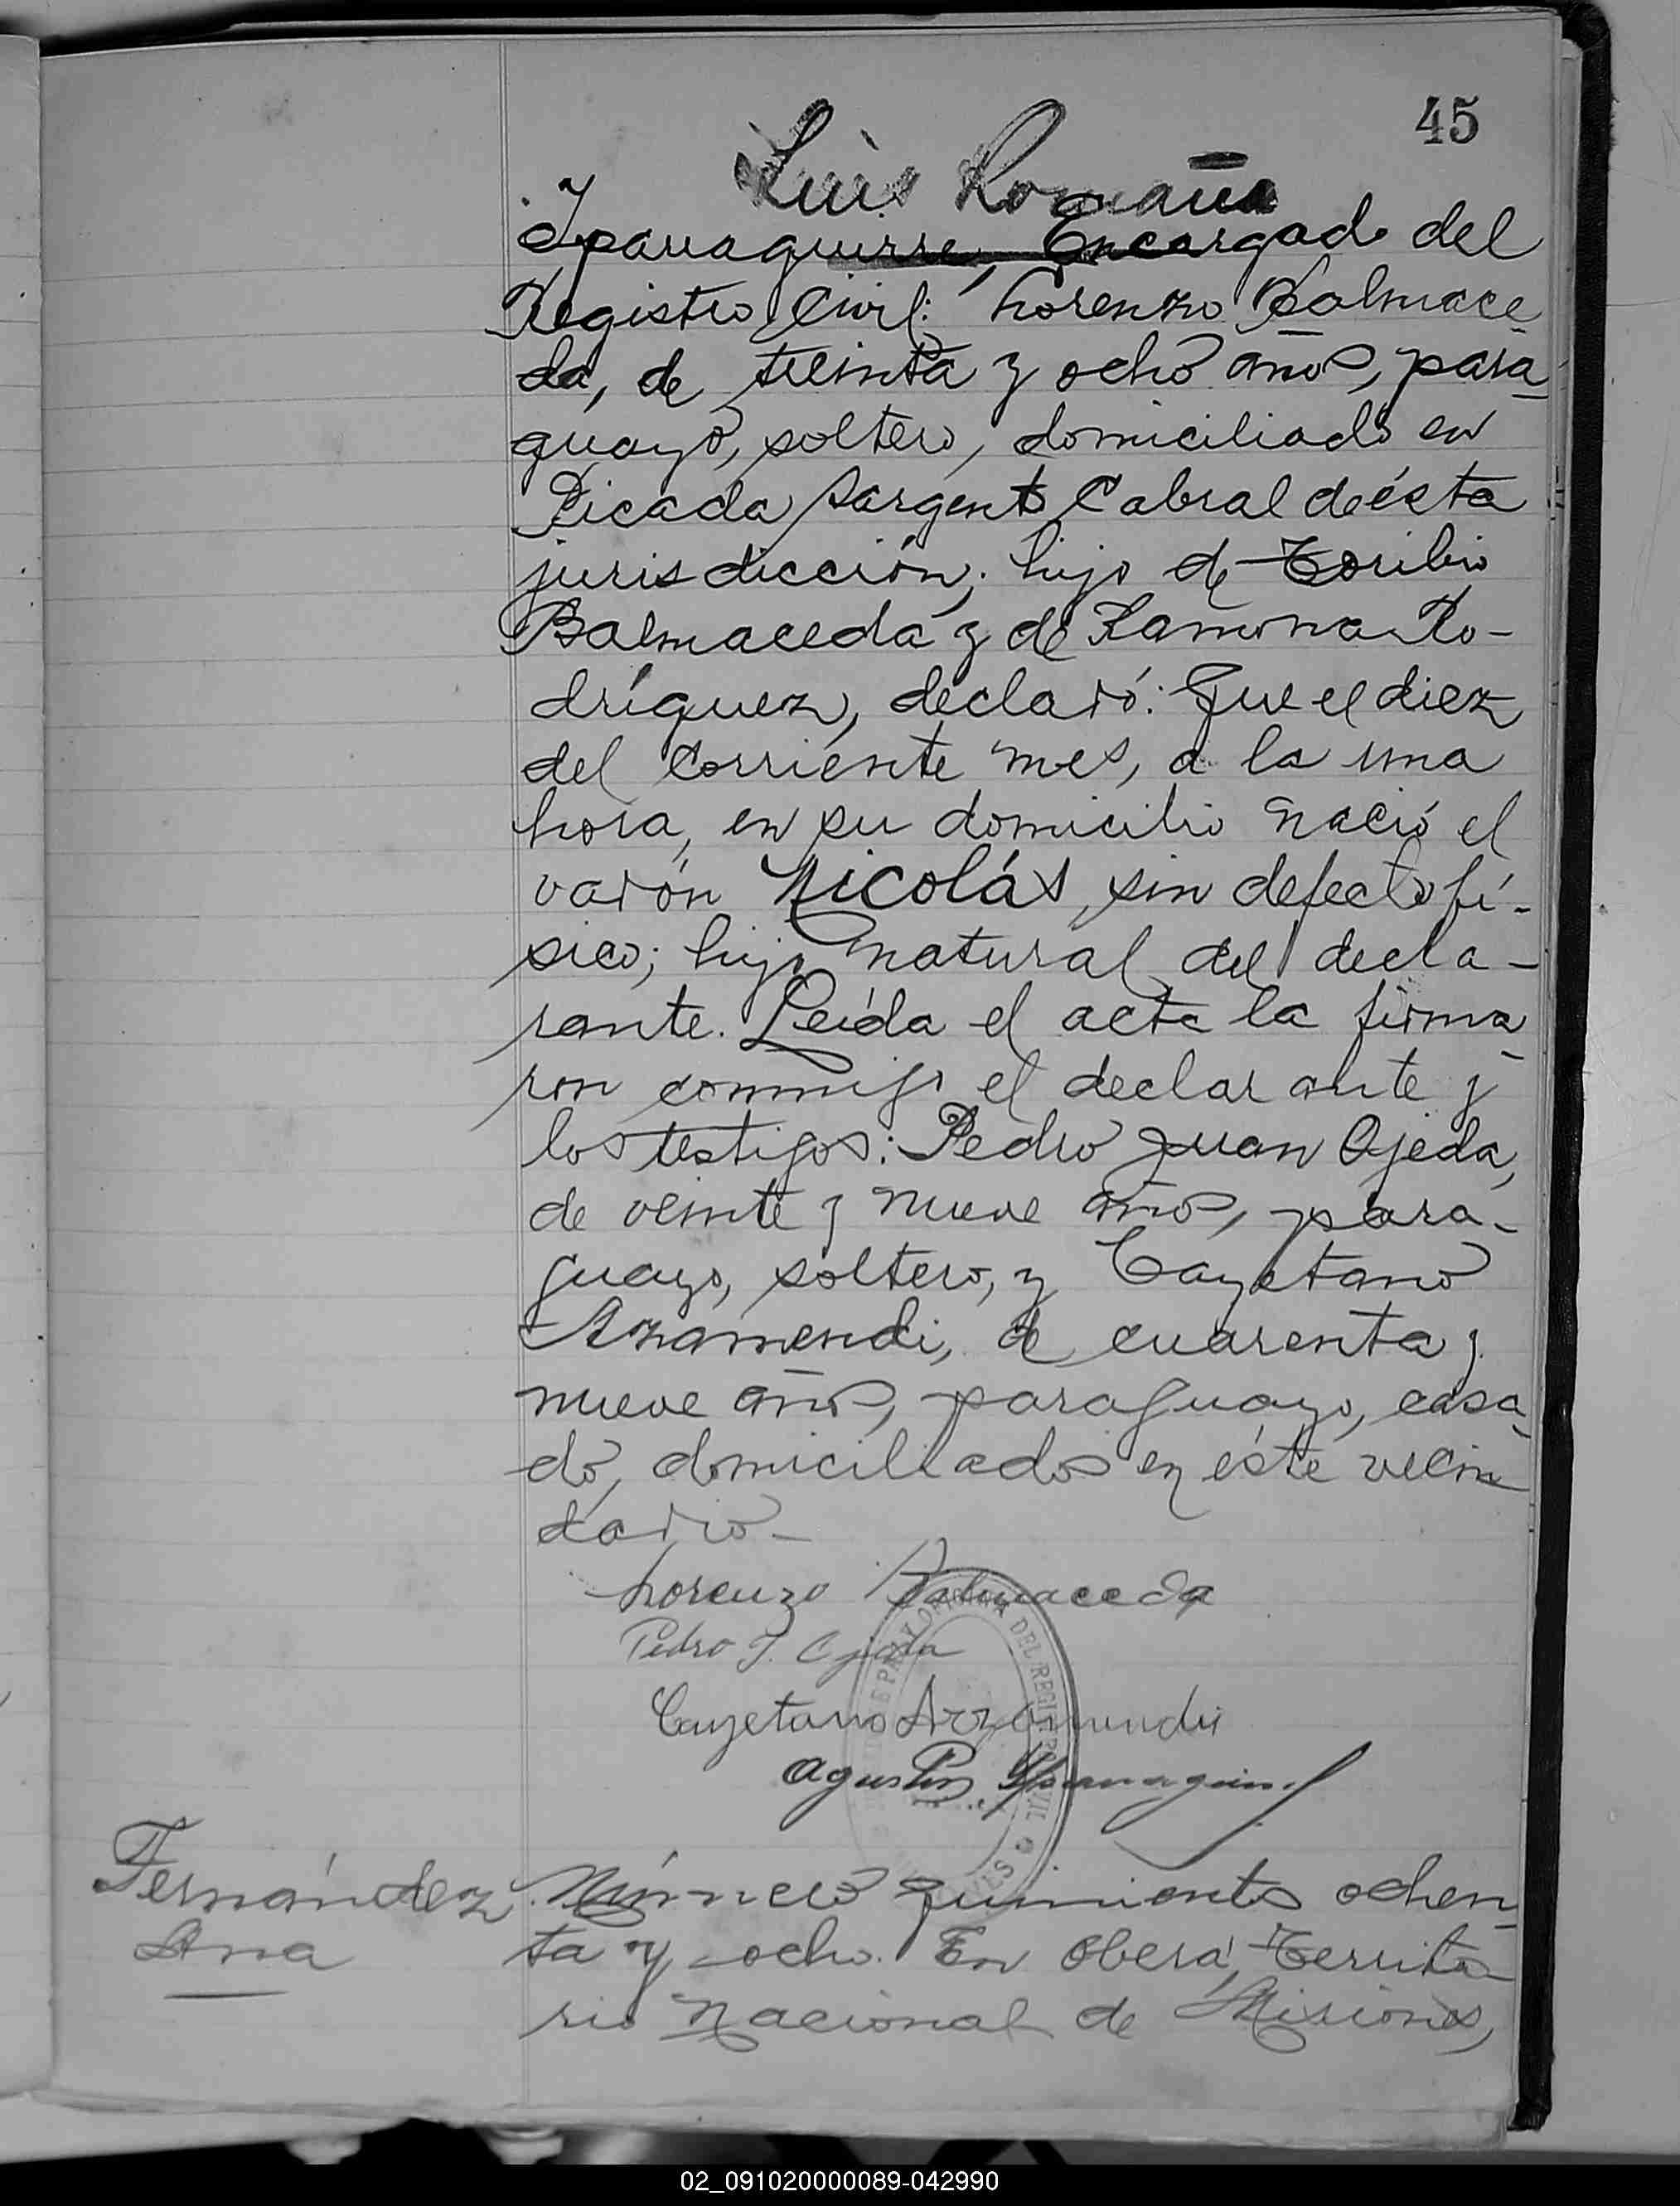 45
Luis Romaña
Yparraguirre, Encargado del
Registro Civil: Lorenzo Balmace-
da, de treinta y ocho años, para-
guayo, soltero, domiciliado en
Picada Sargento Cabral de ésta
jurisdicción; hijo de Toribio
Balmaceda y de Ramona Ro-
dríguez, declaró: Que el diez
del corriente mes, a la una
hora, en su domicilio nació el
varón Nicolás, sin defecto fí-
sico; hijo natural del decla-
rante. Leída el acta la firma-
ron conmigo el declarante y
los testigos: Pedro Juan Ojeda,
de veinte y nueve años, para-
guayo, soltero, y Cayetano
Azamendi, de cuarenta y
nueve años, paraguayo, casa-
do, domiciliados en éste vecin
dario-
Lorenzo Balmaceda
Pedro J. Ojeda
Cayetano Arzamendi
Agustin
OFICINA DEL REGISTRO CIVIL
Fernández
Ana
Número quinientos ochen-
ta y ocho. En Oberá, Territo-
rio Nacional de Misiones,
02_091020000089-042990